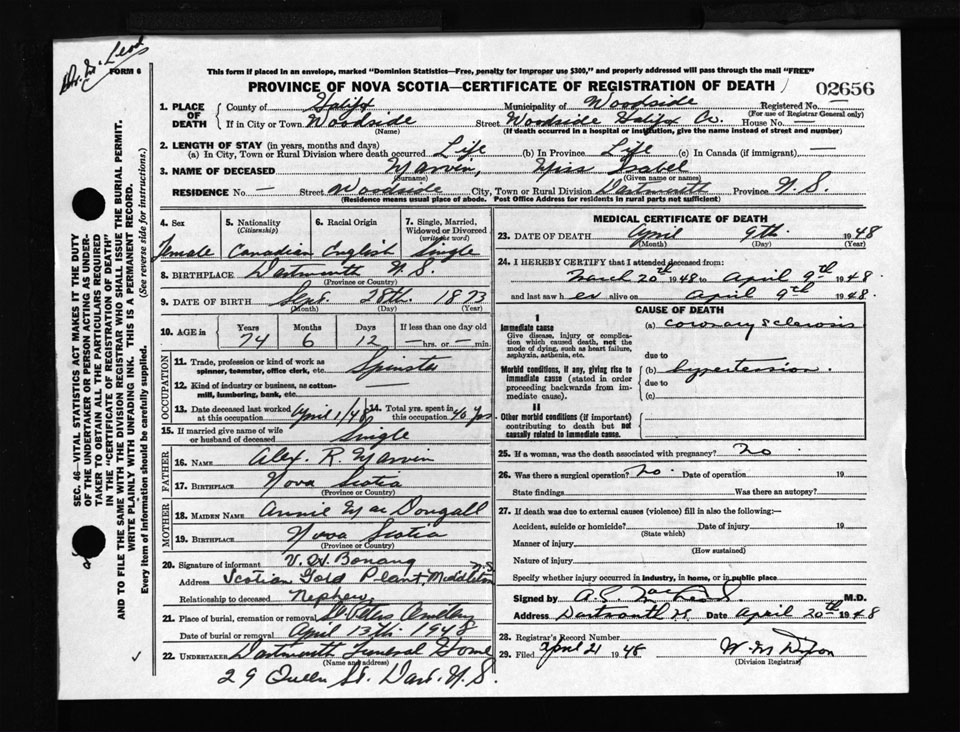 Dr. McLeod
FORM 6
This form if placed in an envelope, marked "Dominion Statistics—Free, penalty for improper use $300," and properly addressed will pass through the mail "FREE"
PROVINCE OF NOVA SCOTIA—CERTIFICATE OF REGISTRATION OF DEATH
02656
1. PLACE OF DEATH
County of Halifx Municipality of Woodside Registered No. —
(For use of Registrar General only)
If in City or Town Woodside Street Woodside Halifx Co. House No. —
(Name) (If death occurred in a hospital or institution, give the name instead of street and number)
2. LENGTH OF STAY (in years, months and days)
(a) In City, Town or Rural Division where death occurred Life (b) In Province Life (c) In Canada (if immigrant) —
3. NAME OF DECEASED Marvin, Miss Isabel
(Surname) (Given name or names)
RESIDENCE No. — Street Woodside City, Town or Rural Division Dartmouth Province N.S.
(Residence means usual place of abode. Post Office Address for residents in rural parts not sufficient)
4. Sex
Female
5. Nationality (Citizenship)
Canadian
6. Racial Origin
English
7. Single, Married, Widowed or Divorced (write the word)
Single
8. BIRTHPLACE Dartmouth N.S.
(Province or Country)
9. DATE OF BIRTH Sept. 28th. 1873
(Month) (Day) (Year)
10. AGE in Years Months Days If less than one day old
74 6 12 — hrs. or — min.
OCCUPATION
11. Trade, profession or kind of work as spinner, teamster, office clerk, etc. Spinster
12. Kind of industry or business, as cotton-mill, lumbering, bank, etc. —
13. Date deceased last worked at this occupation April 1/48 14. Total yrs. spent in this occupation 40 yrs
15. If married give name of wife or husband of deceased Single
FATHER
16. NAME Alex. R. Marvin
17. BIRTHPLACE Nova Scotia
(Province or Country)
MOTHER
18. MAIDEN NAME Annie MacDougall
19. BIRTHPLACE Nova Scotia
(Province or Country)
20. Signature of informant V. H. Bonang
Address Scotian Gold Plant, Middleton N.S.
Relationship to deceased Nephew
21. Place of burial, cremation or removal St. Peters Cemetery
Date of burial or removal April 13th 1948
22. UNDERTAKER Dartmouth Funeral Home
(Name and address)
29 Queen St. Dart. N.S.
MEDICAL CERTIFICATE OF DEATH
23. DATE OF DEATH April 9th. 1948
(Month) (Day) (Year)
24. I HEREBY CERTIFY that I attended deceased from:
March 20th 1948 to April 9th 1948
and last saw h er alive on April 9th 1948.
CAUSE OF DEATH
I
Immediate cause
Give disease, injury or complication which caused death, not the mode of dying, such as heart failure, asphyxia, asthenia, etc.
(a) coronary sclerosis
due to
Morbid conditions, if any, giving rise to immediate cause (stated in order proceeding backwards from immediate cause).
(b) hypertension.
due to
(c)
II
Other morbid conditions (if important) contributing to death but not causally related to immediate cause.
25. If a woman, was the death associated with pregnancy? No
26. Was there a surgical operation? No. Date of operation 19
State findings Was there an autopsy?
27. If death was due to external causes (violence) fill in also the following:—
Accident, suicide or homicide? Date of injury 19
(State which)
Manner of injury
(How sustained)
Nature of injury
Specify whether injury occurred in industry, in home, or in public place
Signed by M.D.
Address Dartmouth N. Date April 20th 1948
28. Registrar's Record Number
29. Filed April 21 1948
(Division Registrar)
SEC. 46—VITAL STATISTICS ACT MAKES IT THE DUTY
OF THE UNDERTAKER OR PERSON ACTING AS UNDER-
TAKER TO OBTAIN ALL THE PARTICULARS REQUIRED
IN THE "CERTIFICATE OF REGISTRATION OF DEATH"
AND TO FILE THE SAME WITH THE DIVISION REGISTRAR WHO SHALL ISSUE THE BURIAL PERMIT.
WRITE PLAINLY WITH UNFADING INK. THIS IS A PERMANENT RECORD.
Every item of information should be carefully supplied. (See reverse side for instructions.)